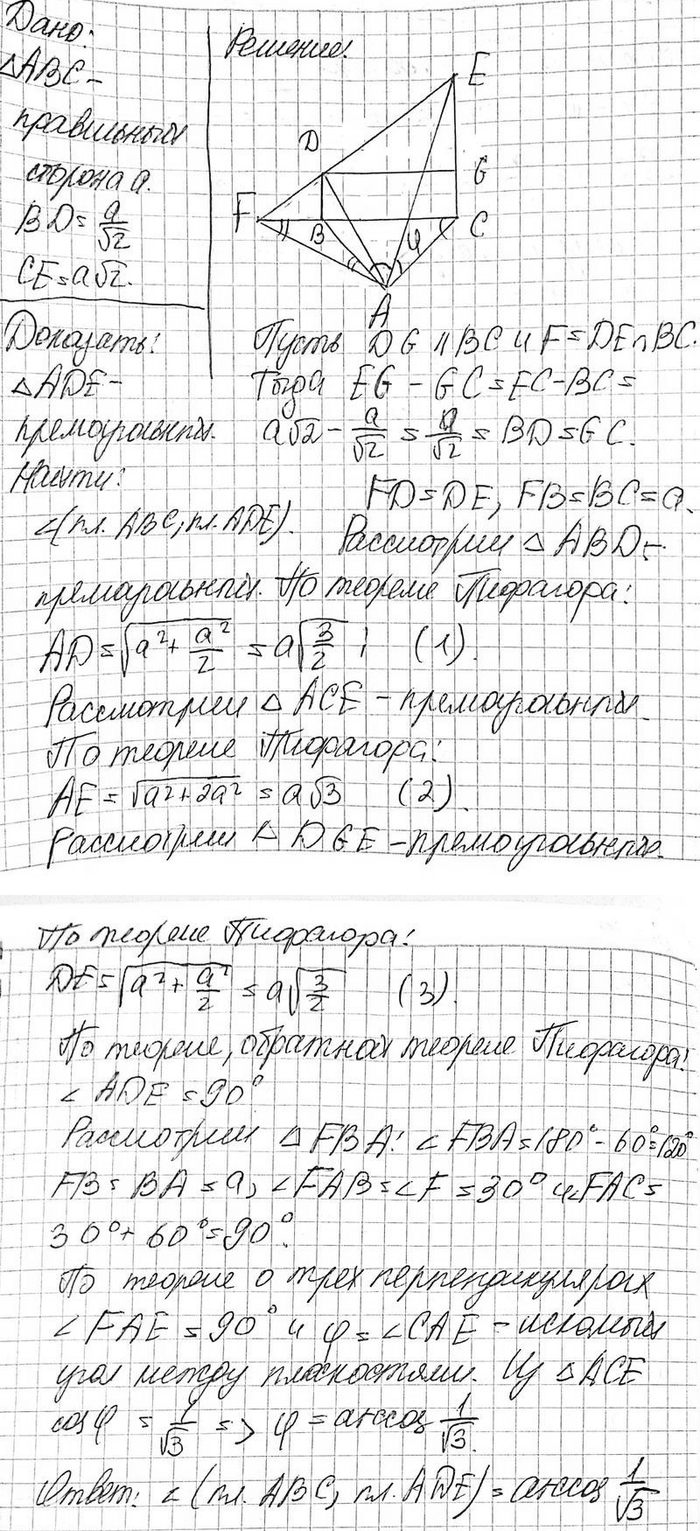 Дано:
△ABC –
правильный
сторона a.
BD = a/√2
CE = a√2.
Доказать:
△ADE –
прямоугольный.
Найти:
∠(пл. ABC; пл. ADE).
Решение:
E
D
G
F
B
C
φ
A
Пусть DG ∥ BC и F = DE ∩ BC.
Тогда EG – GC = EC – BC =
a√2 – a/√2 = a/√2 = BD = GC.
FD = DE, FB = BC = a.
Рассмотрим △ABD –
прямоугольный. По теореме Пифагора:
AD = √(a² + a²/2) = a√(3/2) ; (1).
Рассмотрим △ACE – прямоугольный.
По теореме Пифагора:
AE = √(a² + 2a²) = a√3 (2).
Рассмотрим △DGE – прямоугольный.
По теореме Пифагора:
DE = √(a² + a²/2) = a√(3/2) (3).
По теореме, обратной теореме Пифагора:
∠ADE = 90°
Рассмотрим △FBA: ∠FBA = 180° – 60° = 120°
FB = BA = a, ∠FAB = ∠F = 30° и ∠FAC =
30° + 60° = 90°.
По теореме о трех перпендикулярах
∠FAE = 90° и φ = ∠CAE – искомый
угол между плоскостями. Из △ACE
cos φ = 1/√3 => φ = arccos 1/√3.
Ответ: ∠(пл. ABC, пл. ADE) = arccos 1/√3